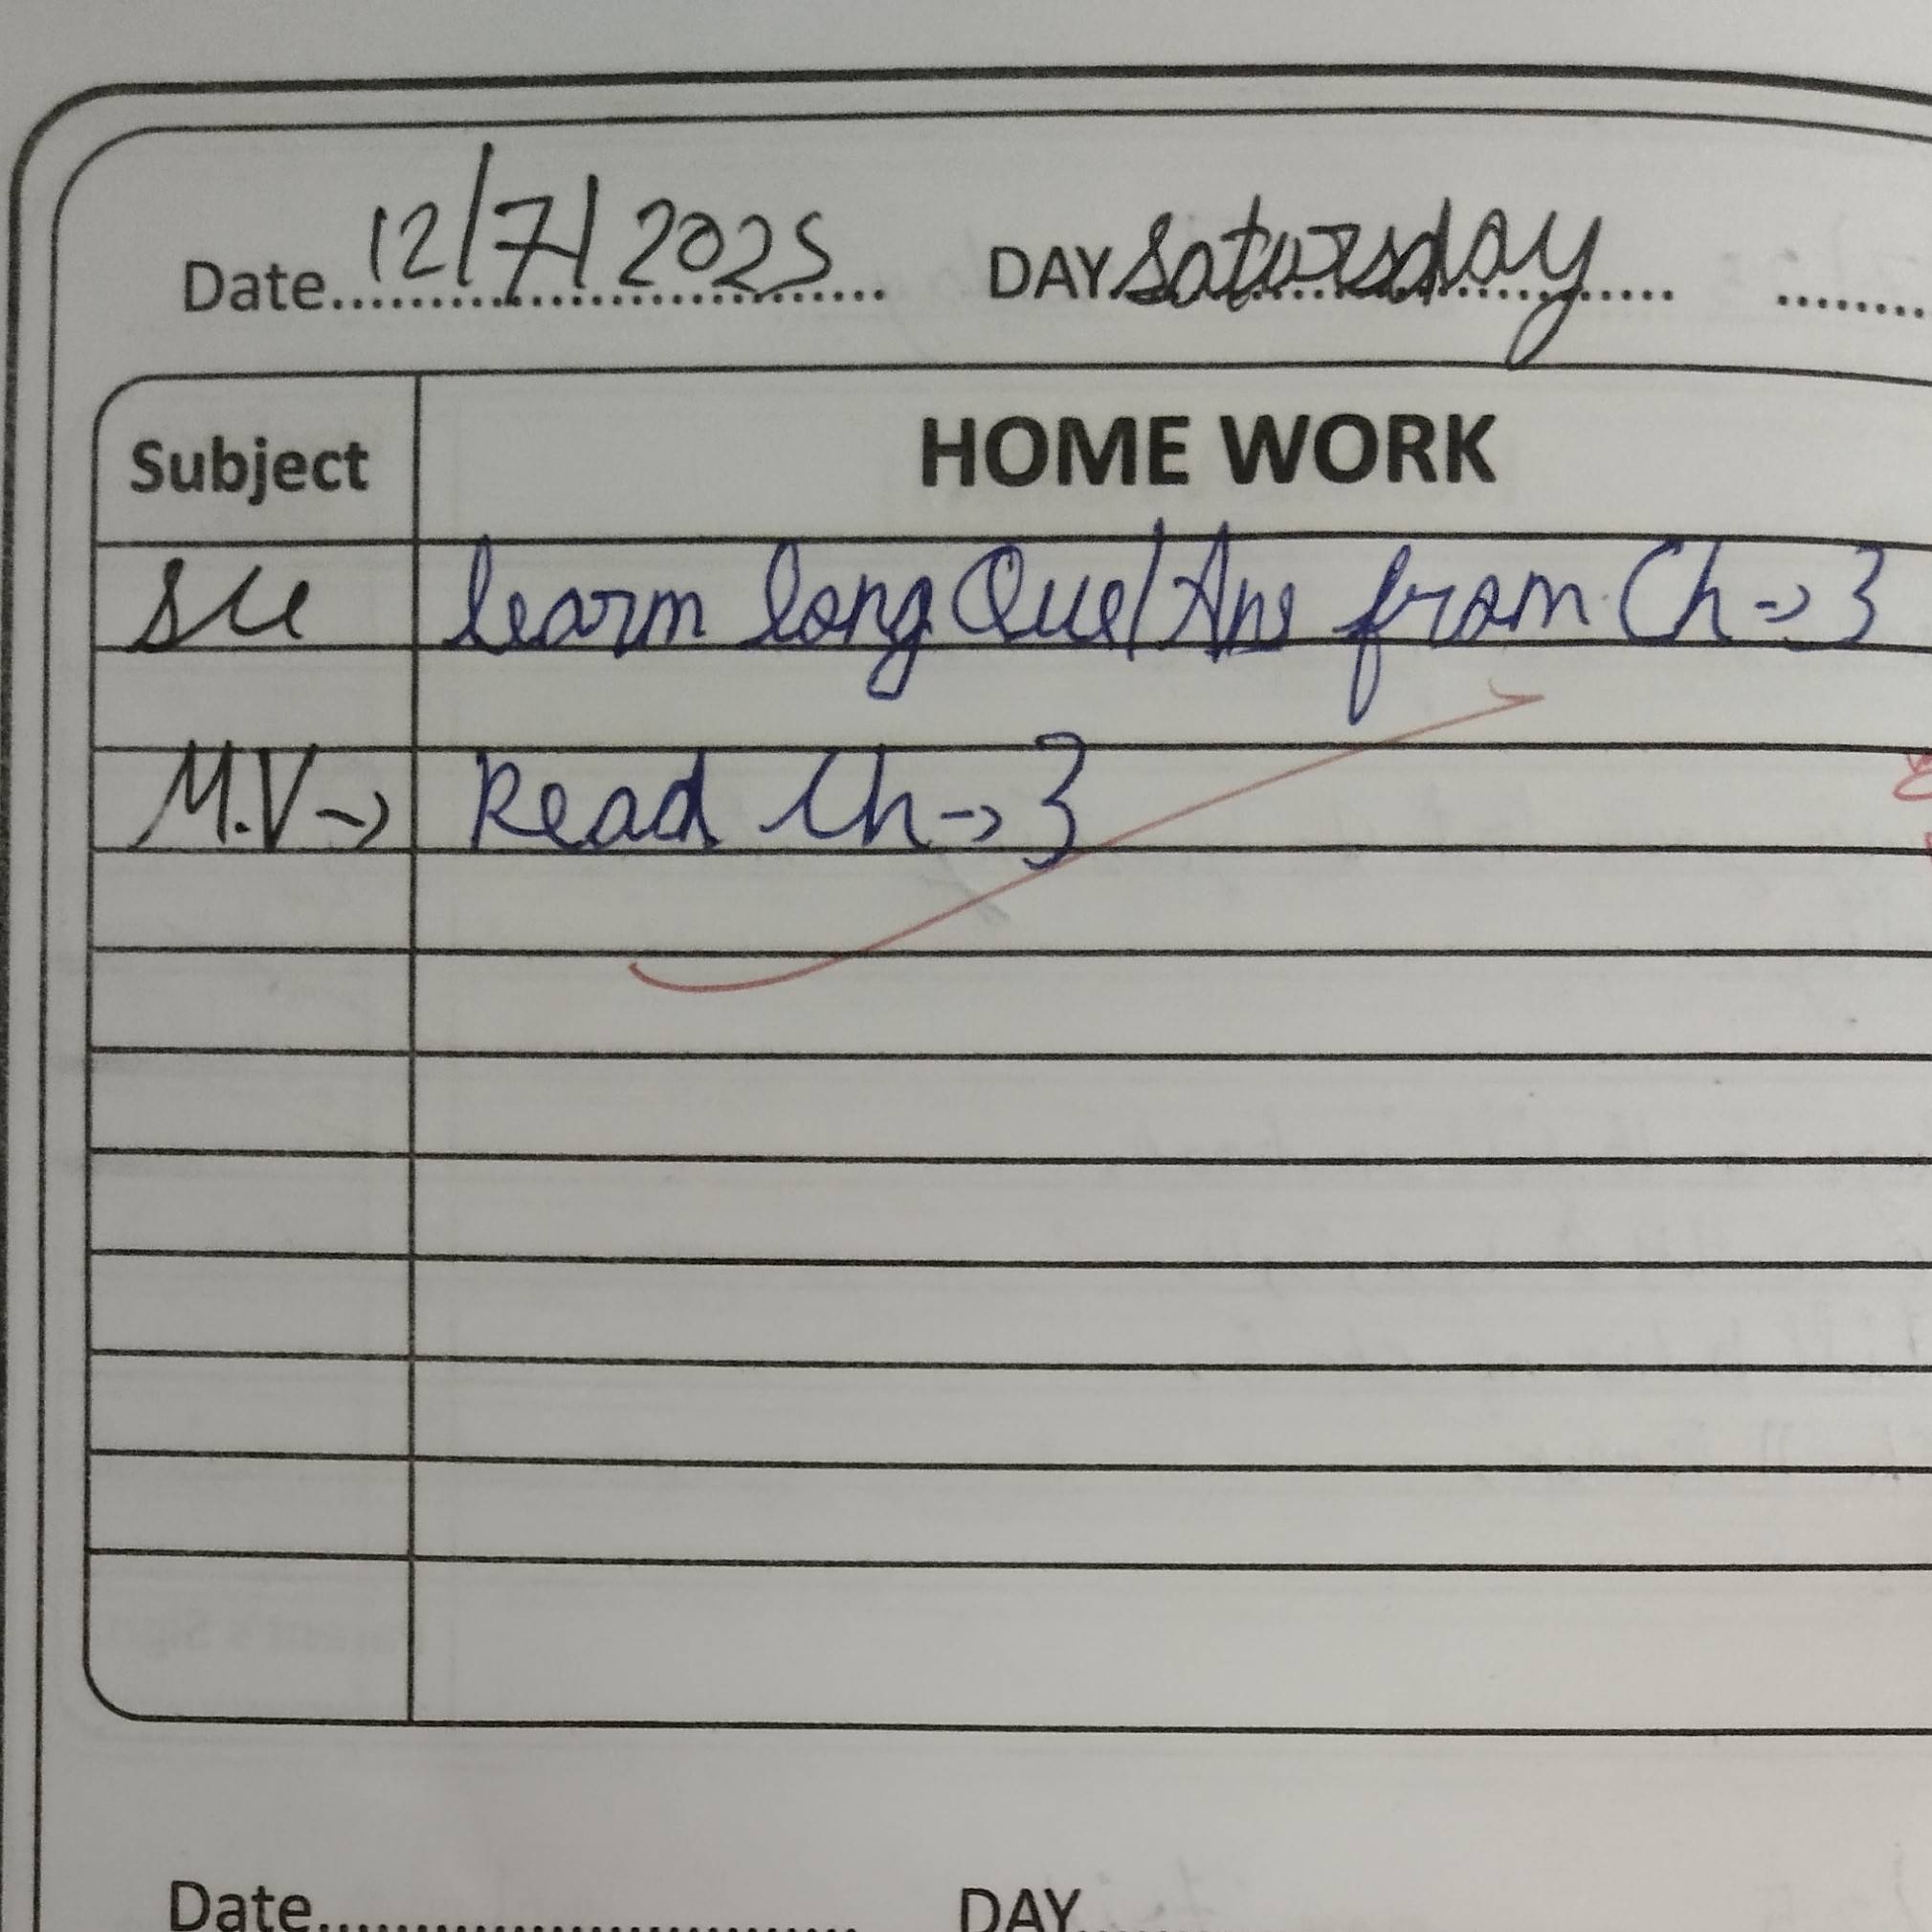 Date 12/7/2025 DAY Saturday
Subject HOME WORK
Sci learn long Que/Ans from Ch → 3
M.V → Read Ch → 3
Date DAY